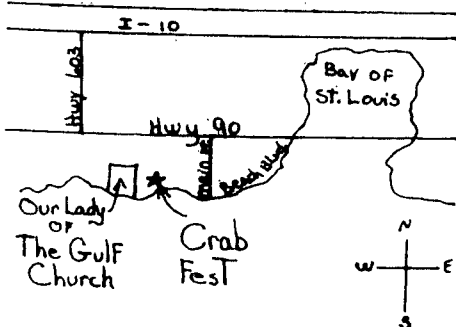 I-10
Hwy 603
Bay of
St. Louis
Hwy 90
main st
Beach Blvd
Our Lady
OF
The Gulf
Church
Crab
Fest
N
W E
S